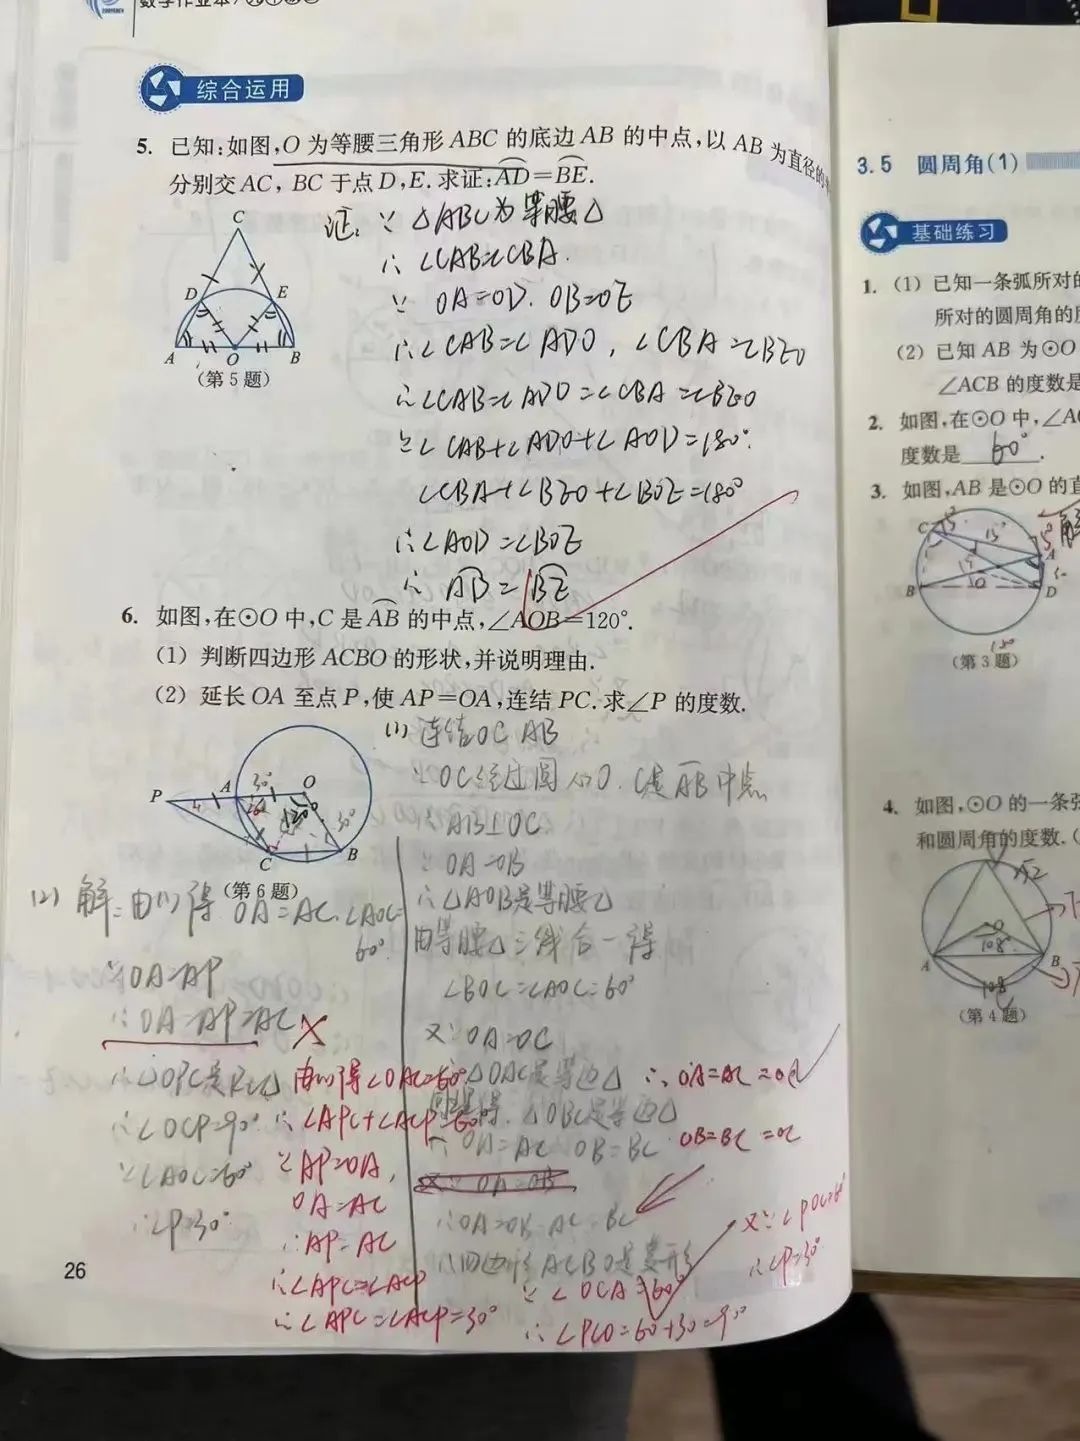 综合运用
5. 已知:如图,O 为等腰三角形 ABC 的底边 AB 的中点,以 AB 为直径的
分别交 AC, BC 于点 D,E. 求证:AD=BE.
C
D
E
A
O
B
(第 5 题)
证: ∵ △ABC为等腰△
∴ ∠CAB=∠CBA.
∵ OA=OD. OB=OE
∴∠CAB=∠ADO, ∠CBA=∠BEO
∴∠CAB=∠ADO=∠CBA=∠BEO
∵∠CAB+∠ADO+∠AOD=180°.
∠CBA+∠BEO+∠BOE=180°
∴∠AOD=∠BOE
∴ AD=BE
6. 如图,在⊙O 中,C 是 AB 的中点,∠AOB=120°.
(1) 判断四边形 ACBO 的形状,并说明理由.
(2) 延长 OA 至点 P,使 AP=OA,连结 PC. 求∠P 的度数.
P
A
30°
O
120°
30°
C
B
(第 6 题)
(1) 连结OC AB
∵OC经过圆心O. C是AB中点
∴AB⊥OC
∵OA=OB
∴△AOB是等腰△
由等腰△三线合一得
∠BOC=∠AOC=60°
又∵OA=OC
∴△OAC是等边△ ∴OA=AC=OC
同理得. △OBC是等边△
∴OA=AC OB=BC OB=BC=OC
又∵OA=OB
∴OA=OB=AC=BC
∴四边形ACBO是菱形
(2) 解: 由(1)得 OA=AC. ∠AOC=
60°
∵OA=AP
∴OA=AP=AC
∴△OPC是Rt△
∴∠OCP=90°
∵∠AOC=60°
∴∠P=30°
由(1)得∠OAC=60°
∴∠APC+∠ACP=60°
∵AP=OA,
OA=AC
∴AP=AC
∴∠APC=∠ACP
∴∠APC=∠ACP=30°
∵∠OCA=60°
∴∠PCO=60+30=90°
又∵∠POC=60°
∴∠P=30°
26
3.5 圆周角(1)
基础练习
1. (1) 已知一条弧所对的
所对的圆周角的度
(2) 已知 AB 为⊙O
∠ACB 的度数是
2. 如图,在⊙O 中,∠AC
度数是 60°.
3. 如图,AB 是⊙O 的直
C
A
B
O
D
15°
(第 3 题)
4. 如图,⊙O 的一条弦
和圆周角的度数.
O
108°
A
B
108
(第 4 题)